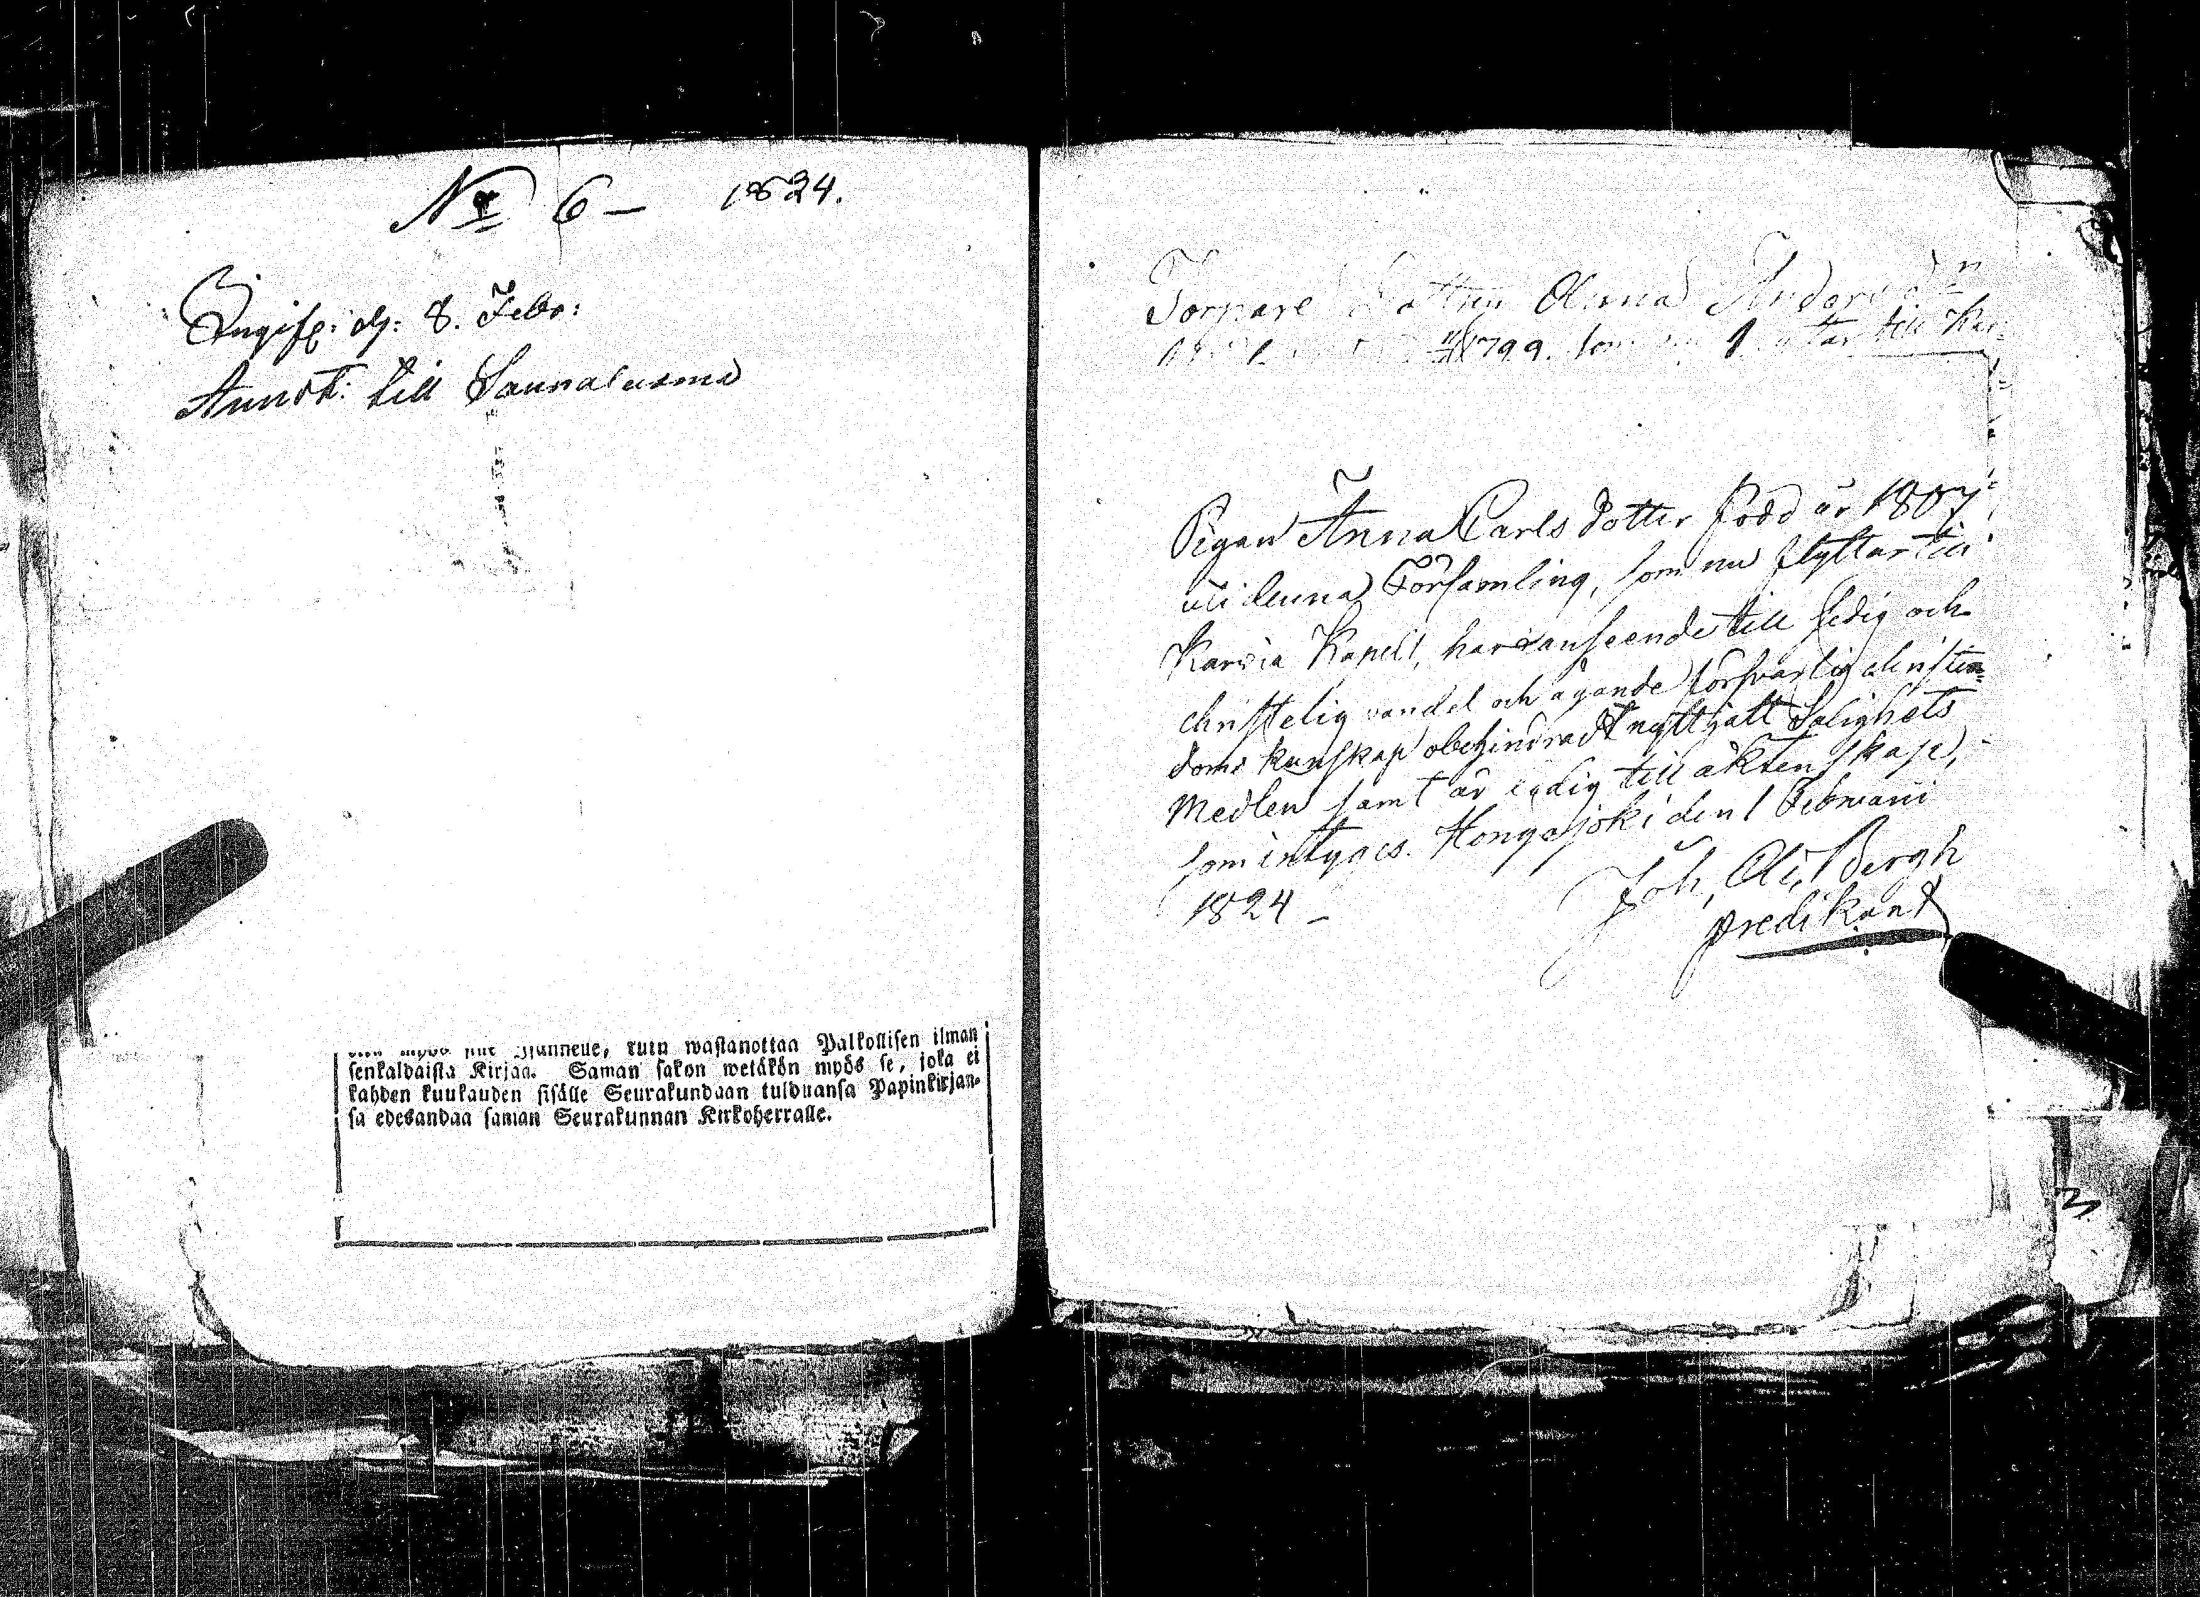 No 6 — 1824.
8. Febr:
Annot: till Saunaluoma
Isännelle, kuin wastanottaa Palkollisen ilman
senkaldaista Kirjaa. Saman sakon wetäkön myös se, joka ei
kahden kuukauden sisälle Seurakundaan tulduansa Papinkirjan-
sa edesandaa saman Seurakunnan Kirkoherralle.
Torpare Anna Anders
1799. till
Pigan Anna Carls dotter född år 1807
uti denna Församling, som nu flyttar till
Karvia Kapell, har anseende till sedig och
christelig vandel och ägande försvarlig christen-
doms kunskap obehindradt nyttjatt Salighets
Medlen samt är ledig till äktenskap,
som intygas. Hongojoki den 1 Februarii
1824 —
Joh. Ol. Bergh
predikant
3